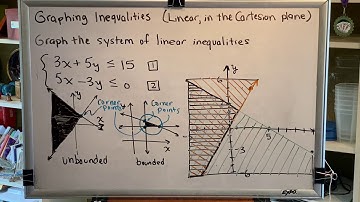 Graphing Inequalities (Linear, in the Cartesian plane)
Graph the system of linear inequalities
3x + 5y ≤ 15 [1]
5x - 3y ≤ 0 [2]
y
corner
points
x
unbounded
y
corner
points
x
bounded
y
6
x
5
-3
-6
Expo